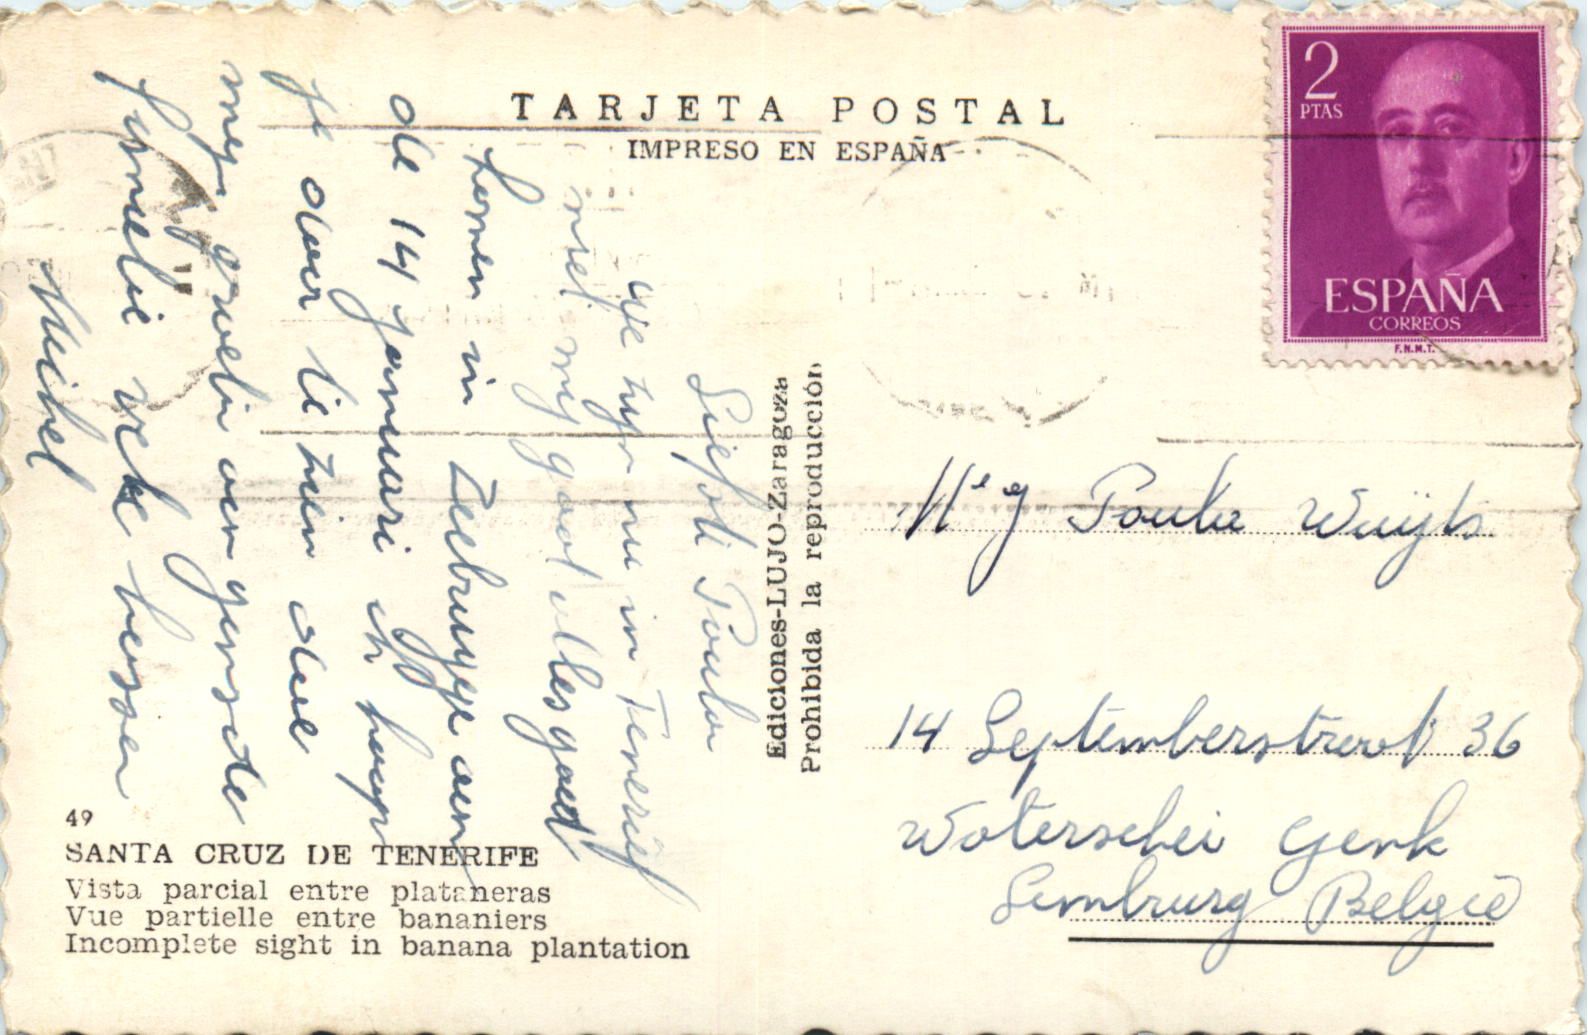 TARJETA POSTAL
IMPRESO EN ESPAÑA
2
PTAS
ESPAÑA
CORREOS
F.N.M.T.
Liefste Paula
We zyn nu in Tenerif
met my gaat alles goed
komen in Zeebrugge aan
de 14 januari ik hoop
je daar te zien doe
myn groeten aan gans de
familie vele kussen
Michel
Ediciones-LUJO-Zaragoza
Prohibida la reproducción
Mej Paula Wuijts
14 Septemberstraat 36
Waterschei Genk
Limburg België
49
SANTA CRUZ DE TENERIFE
Vista parcial entre plataneras
Vue partielle entre bananiers
Incomplete sight in banana plantation